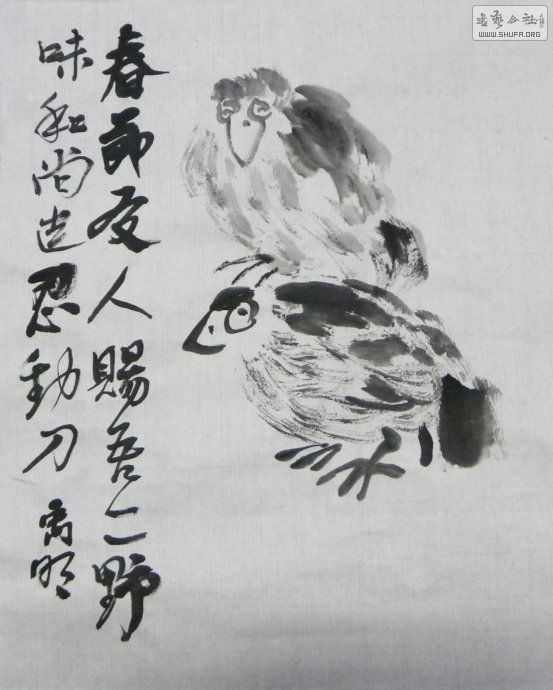 春節友人賜吾二野
味和尚豈忍動刀 禹明
书艺公社
WWW.SHUFA.ORG